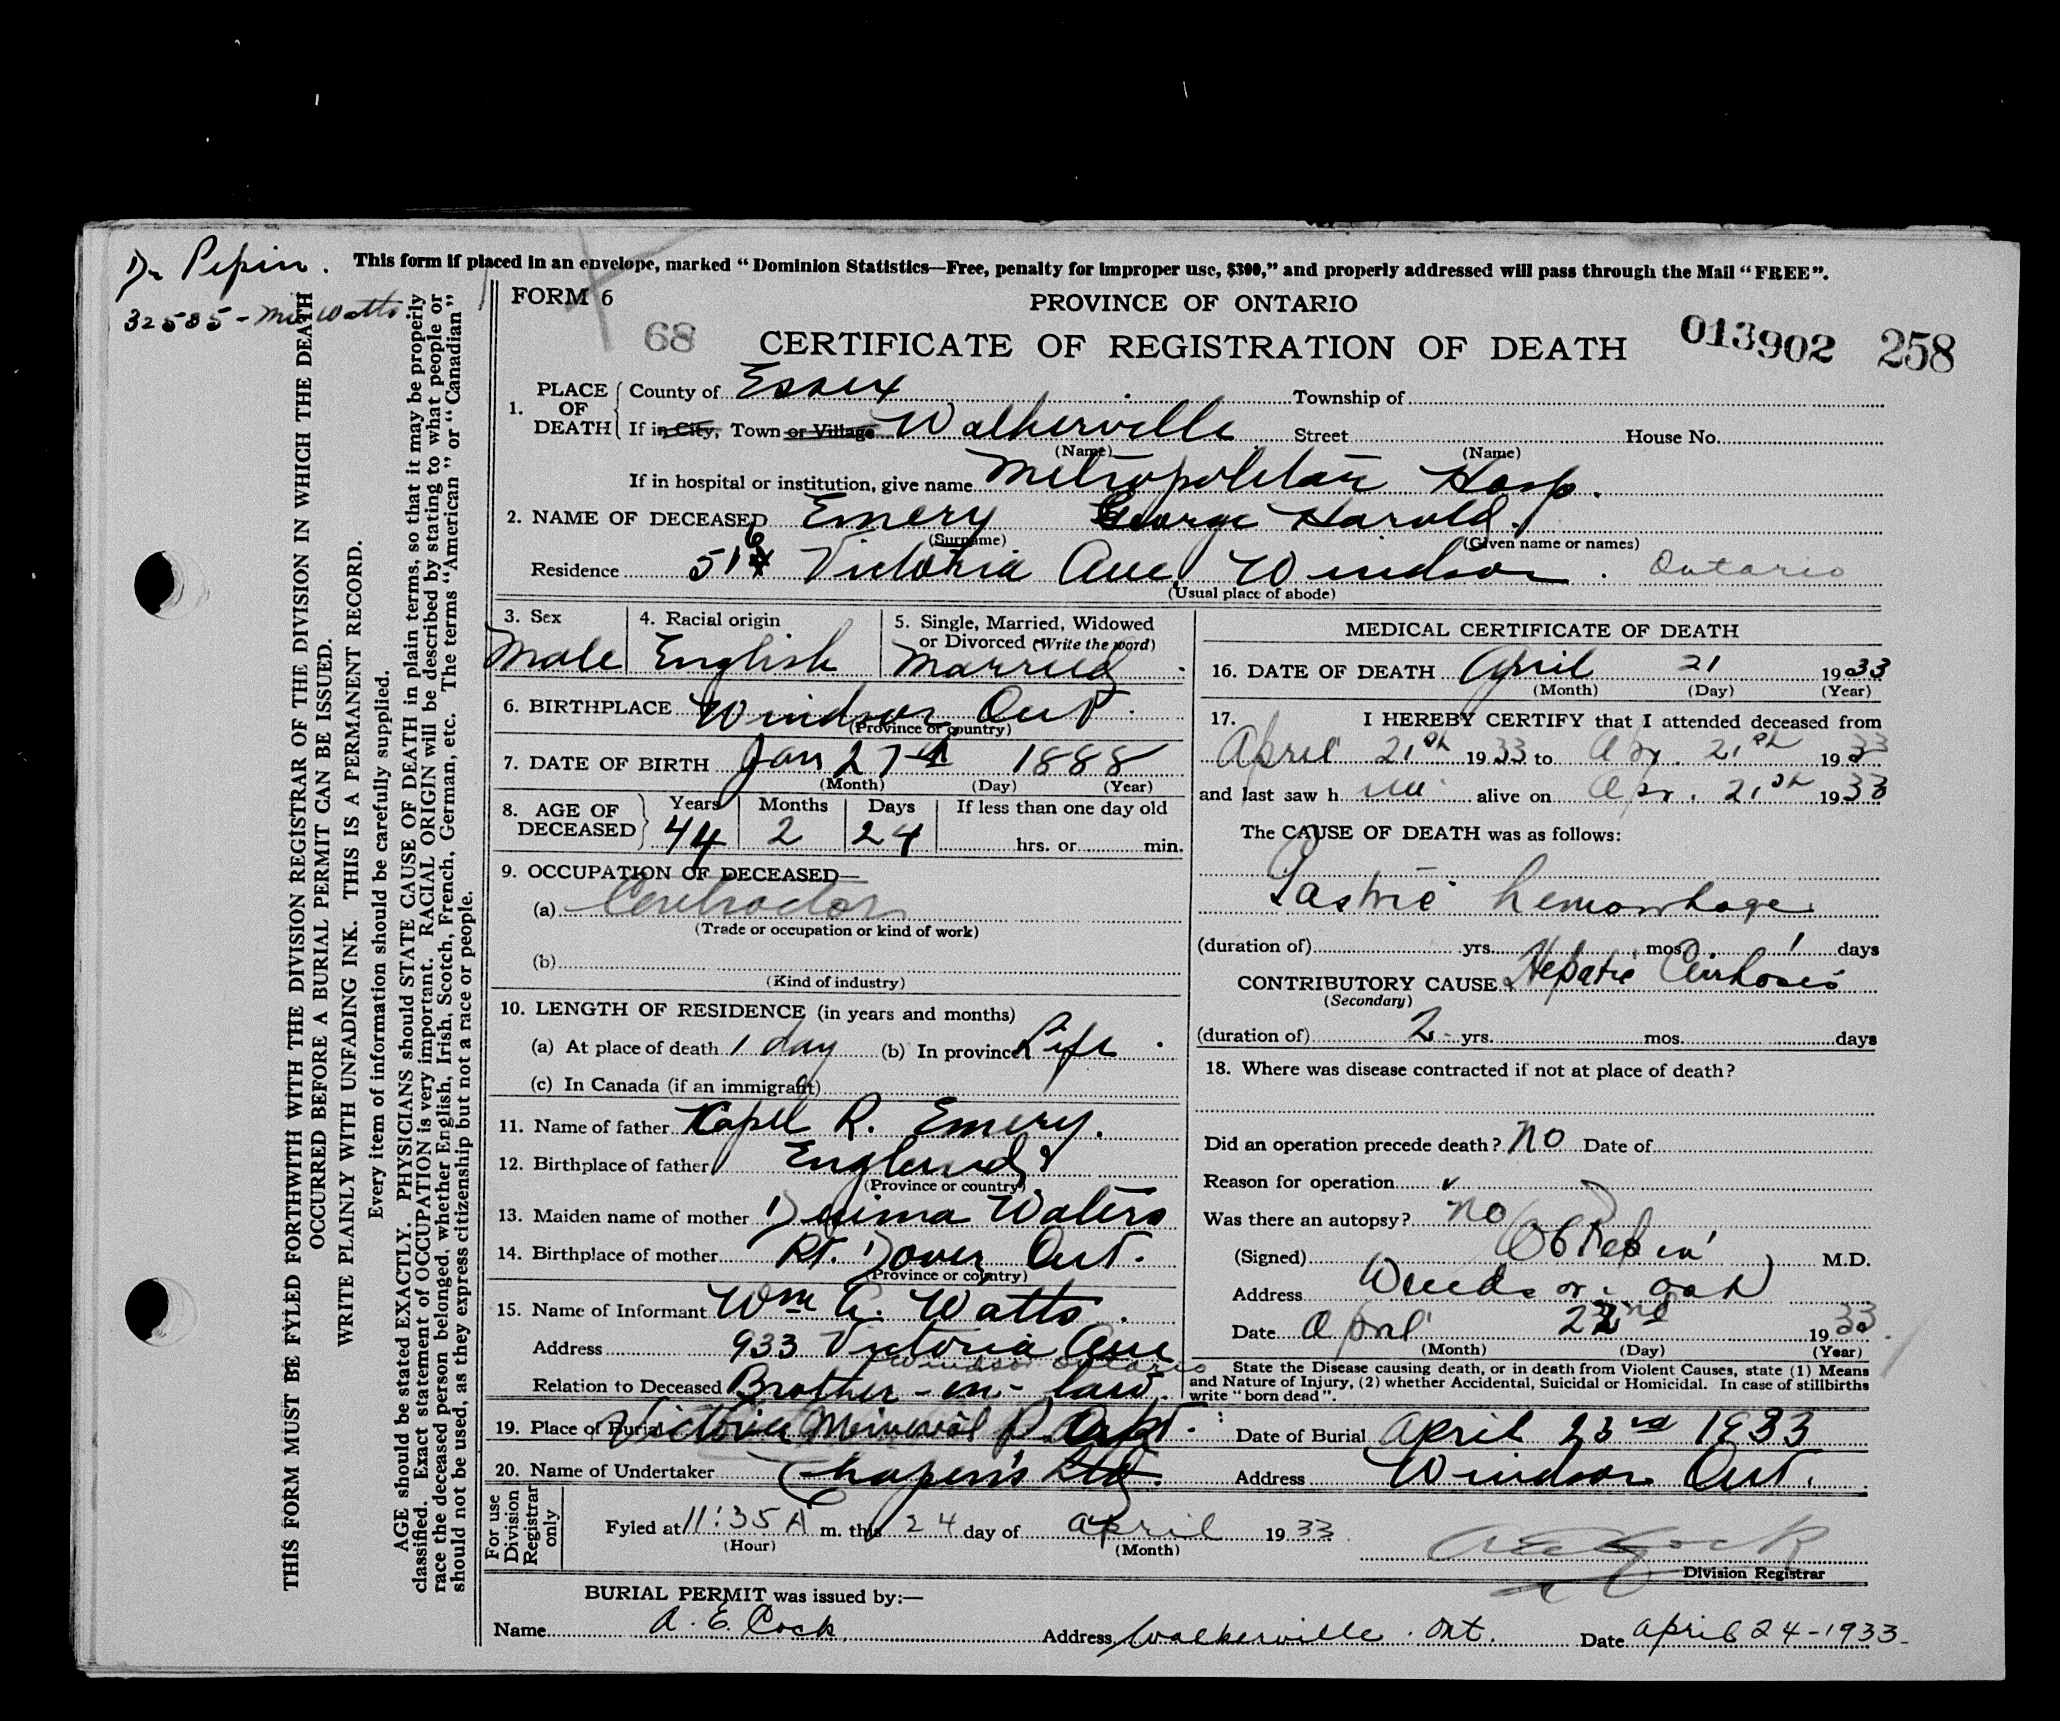 Dr Pepin.
32585 - Mr Watts.
This form if placed in an envelope, marked “Dominion Statistics—Free, penalty for improper use, $300,” and properly addressed will pass through the Mail “FREE”.
THIS FORM MUST BE FYLED FORTHWITH WITH THE DIVISION REGISTRAR OF THE DIVISION IN WHICH THE DEATH
OCCURRED BEFORE A BURIAL PERMIT CAN BE ISSUED.
WRITE PLAINLY WITH UNFADING INK. THIS IS A PERMANENT RECORD.
Every item of information should be carefully supplied.
AGE should be stated EXACTLY. PHYSICIANS should STATE CAUSE OF DEATH in plain terms, so that it may be properly
classified. Exact statement of OCCUPATION is very important. RACIAL ORIGIN will be described by stating to what people or
race the deceased person belonged, whether English, Irish, Scotch, French, German, etc. The terms “American” or “Canadian”
should not be used, as they express citizenship but not a race or people.
FORM 6
PROVINCE OF ONTARIO
68 CERTIFICATE OF REGISTRATION OF DEATH 013902 258
1. PLACE OF DEATH County of Essex Township of
If in City, Town or Village Walkerville Street House No.
(Name) (Name)
If in hospital or institution, give name Metropolitan Hosp.
2. NAME OF DECEASED Emery George Harold.
(Surname) (Given name or names)
Residence 516 Victoria Ave, Windsor. Ontario
(Usual place of abode)
3. Sex Male
4. Racial origin English
5. Single, Married, Widowed
or Divorced (Write the word)
Married
6. BIRTHPLACE Windsor Ont.
(Province or country)
7. DATE OF BIRTH Jan 27th 1888
(Month) (Day) (Year)
8. AGE OF DECEASED Years Months Days If less than one day old
44 2 24 hrs. or min.
9. OCCUPATION OF DECEASED—
(a) Contractor
(Trade or occupation or kind of work)
(b)
(Kind of industry)
10. LENGTH OF RESIDENCE (in years and months)
(a) At place of death 1 day (b) In province Life
(c) In Canada (if an immigrant)
11. Name of father R. Emery.
12. Birthplace of father England
(Province or country)
13. Maiden name of mother Waters
14. Birthplace of mother Pt. Dover Ont.
(Province or country)
15. Name of Informant Wm G. Watts.
Address 933 Victoria Ave
Windsor Ontario
Relation to Deceased Brother-in-law.
MEDICAL CERTIFICATE OF DEATH
16. DATE OF DEATH April 21 1933
(Month) (Day) (Year)
17. I HEREBY CERTIFY that I attended deceased from
April 21st 1933 to Apr. 21st 1933
and last saw h im alive on Apr. 21st 1933
The CAUSE OF DEATH was as follows:
Gastric hemorrhage
(duration of) yrs. mos. 1 days
CONTRIBUTORY CAUSE Hepatic Cirrhosis
(Secondary)
(duration of) 2 yrs. mos. days
18. Where was disease contracted if not at place of death?
Did an operation precede death? No Date of
Reason for operation
Was there an autopsy? No
(Signed) Pepin M.D.
Address Windsor Ont
Date April 22nd 1933
(Month) (Day) (Year)
State the Disease causing death, or in death from Violent Causes, state (1) Means
and Nature of Injury, (2) whether Accidental, Suicidal or Homicidal. In case of stillbirths
write “born dead”.
19. Place of Burial Victoria Memorial P. Ont. Date of Burial April 23rd 1933
20. Name of Undertaker Chapen's Ltd. Address Windsor Ont.
For use Division Registrar only
Fyled at 11:35 A m. this 24 day of April 1933
(Hour) (Month)
A E Cock
Division Registrar
BURIAL PERMIT was issued by:—
Name A. E. Cock Address Walkerville. Ont. Date April 24-1933-